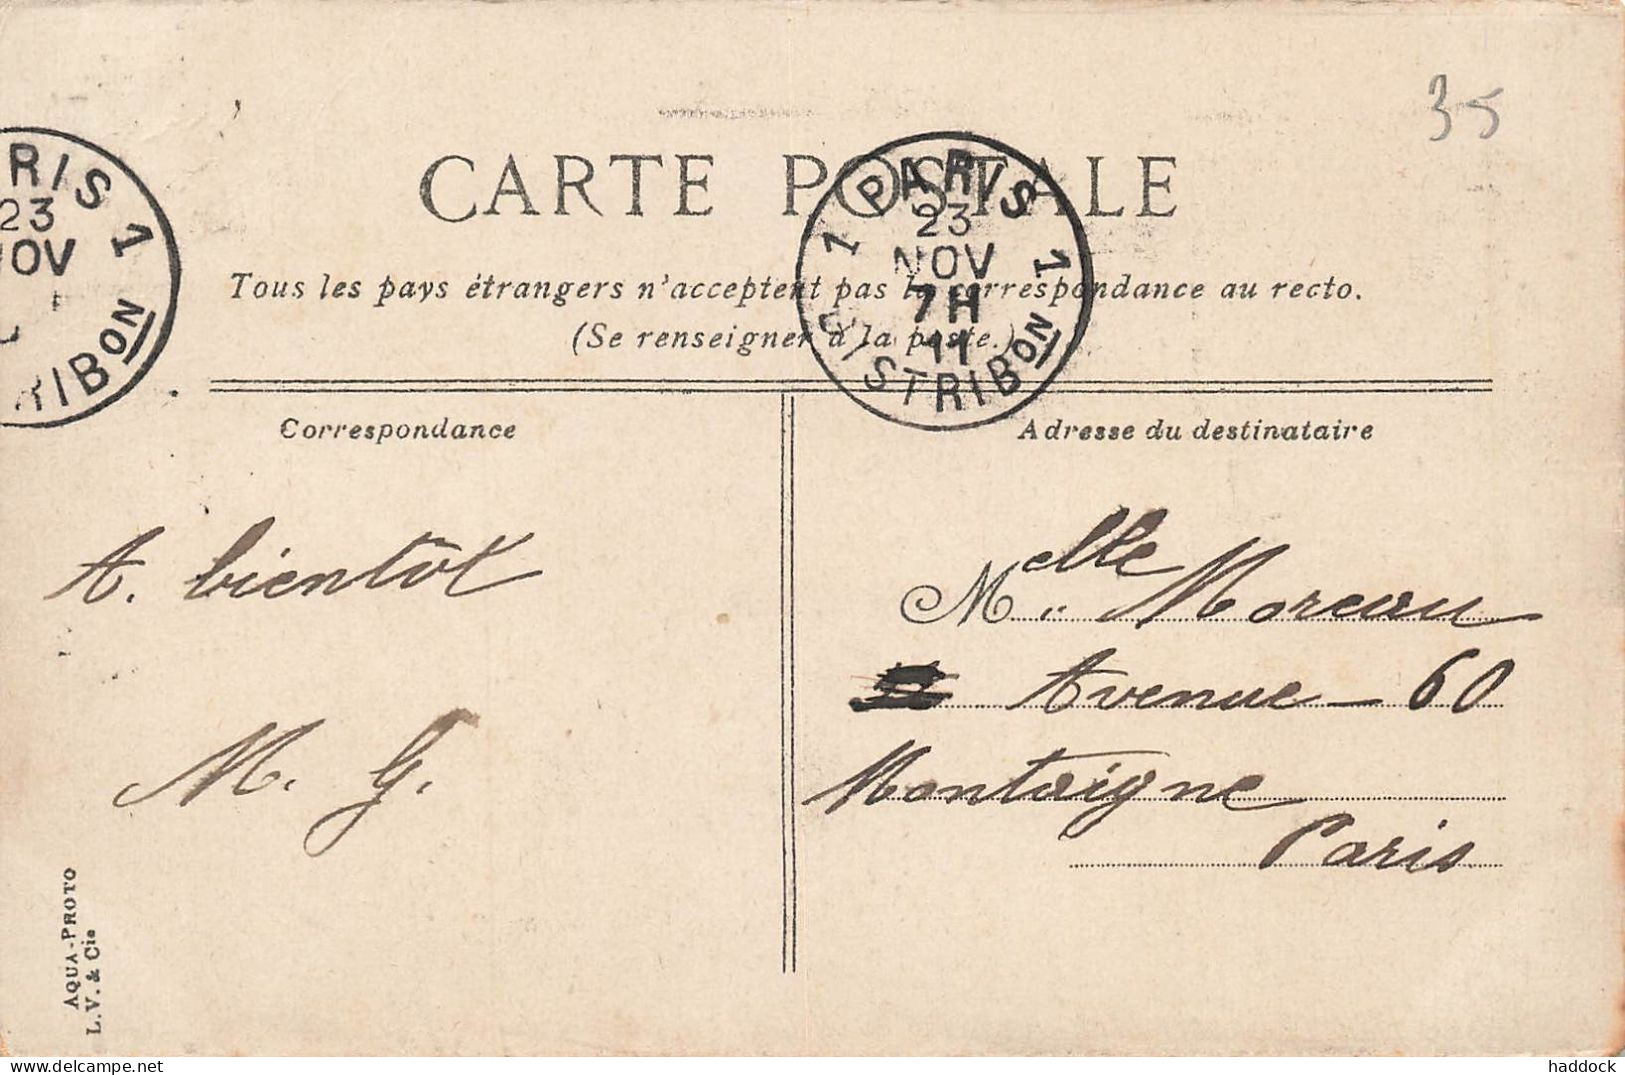 35
CARTE POSTALE
PARIS 1
23
NOV
DISTRIBON
1 PARIS 1
23
NOV
7H
11
DISTRIBON
Tous les pays étrangers n'acceptent pas la correspondance au recto.
(Se renseigner à la poste.)
Correspondance
A. bientôt
M. G.
Adresse du destinataire
Melle Moreau
Avenue - 60
Montaigne
Paris
AQUA-PHOTO
L. V. & Cie
delcampe.net
haddock